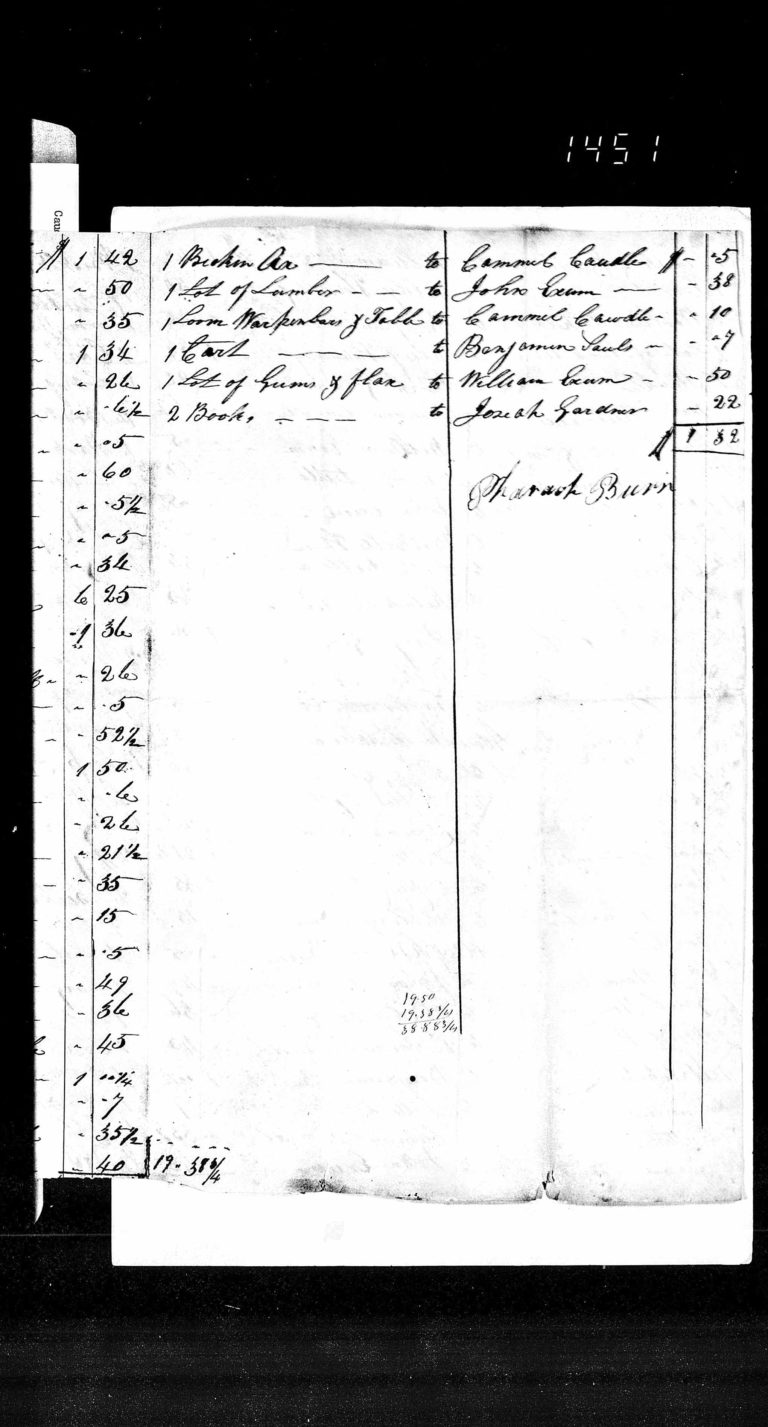 1451
Cau
1 42 1 Brekin Ax — to Cammel Caudle $ - .5
" 50 1 Lot of Lumber - - to John Exum — - 38
" 35 1 Loom Warpenbars & Tabl to Cammel Cawdle - " 10
1 34 1 Cart — — — to Benjamin Sauls - " .7
" 26 1 Lot of Gums & flax to William Exum - - 50
" .6½ 2 Books - — — to Joseah Gardner - 22
" .5 $ 1 32
" 60
Pharaoh Burn
" .5½
" .5
" 34
6 25
1 36
" 26
" .5
" 52½
1 50
" .6
" 26
" 21½
" 35
" 15
" .5
" 49
19.50
" 36
19.38¾
38.88¾
" 45
1 ..¼
" .7
" 35½
" 40 19 - 38¾